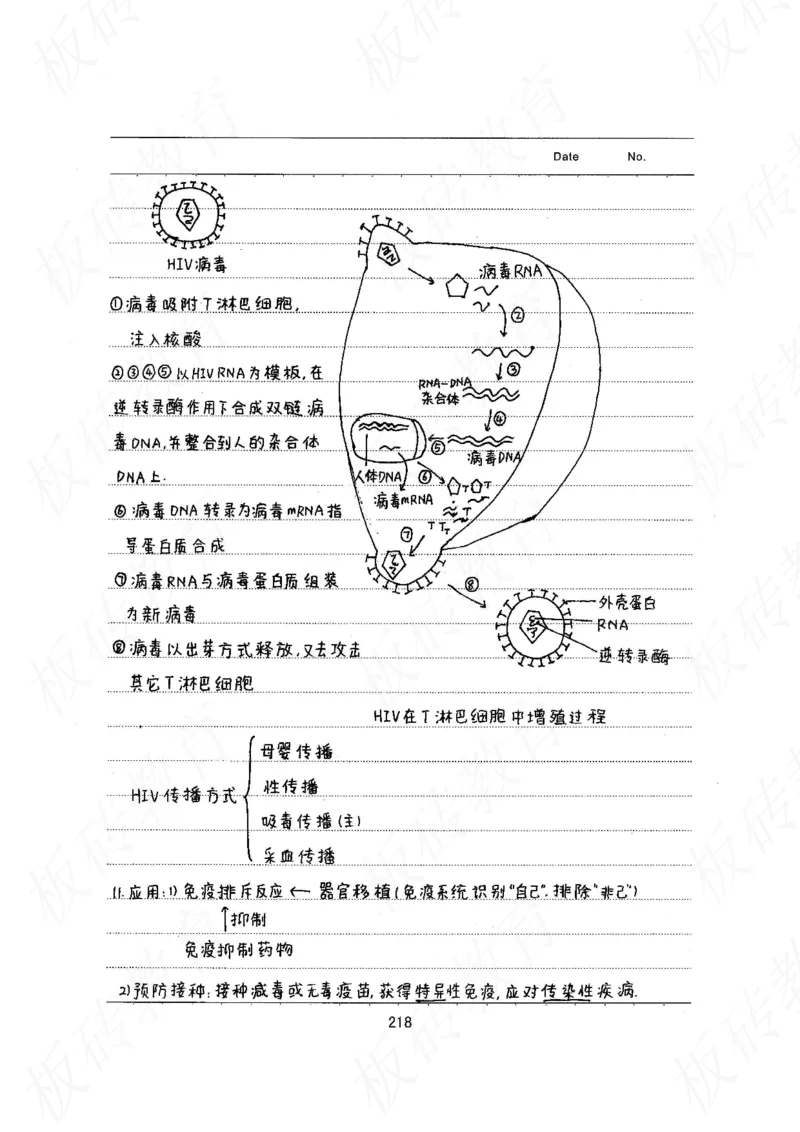 Date No.
HIV病毒
①病毒吸附T淋巴细胞,
注入核酸
②③④⑤以HIV RNA为模板,在
逆转录酶作用下合成双链病
毒DNA,并整合到人的杂合体
DNA上.
⑥病毒DNA转录为病毒mRNA指
导蛋白质合成
⑦病毒RNA与病毒蛋白质组装
为新病毒
⑧病毒以出芽方式释放,又去攻击
其它T淋巴细胞
病毒RNA
②
③
RNA-DNA
杂合体
④
病毒DNA
⑤
人体DNA
⑥
病毒mRNA
⑦
⑧
外壳蛋白
RNA
逆转录酶
HIV在T淋巴细胞中增殖过程
HIV传播方式
母婴传播
性传播
吸毒传播(主)
采血传播
11.应用:1)免疫排斥反应←器官移植(免疫系统识别"自己".排除"非己")
↑抑制
免疫抑制药物
2)预防接种:接种减毒或无毒疫苗,获得特异性免疫,应对传染性疾病.
218
板砖教育